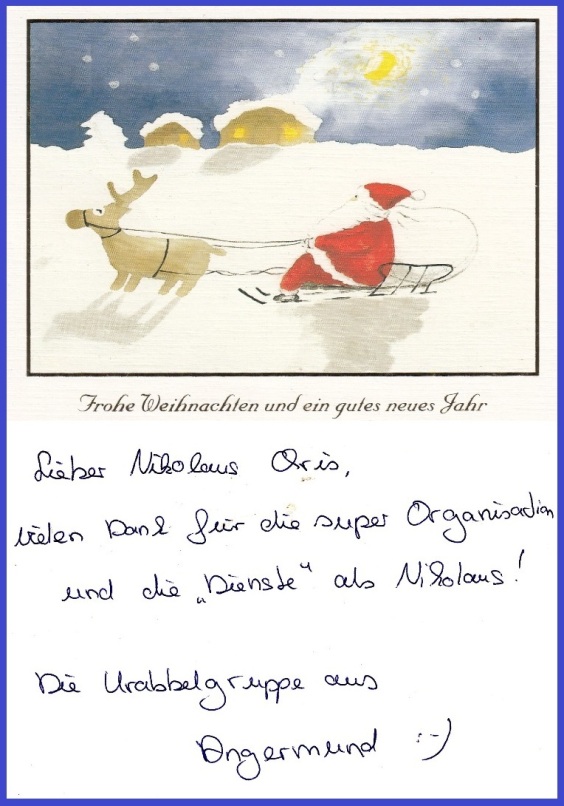 Frohe Weihnachten und ein gutes neues Jahr
Lieber Nikolaus Chris,
vielen Dank für die super Organisation
und die „Dienste“ als Nikolaus!
Die Krabbelgruppe aus
Angermund :-)